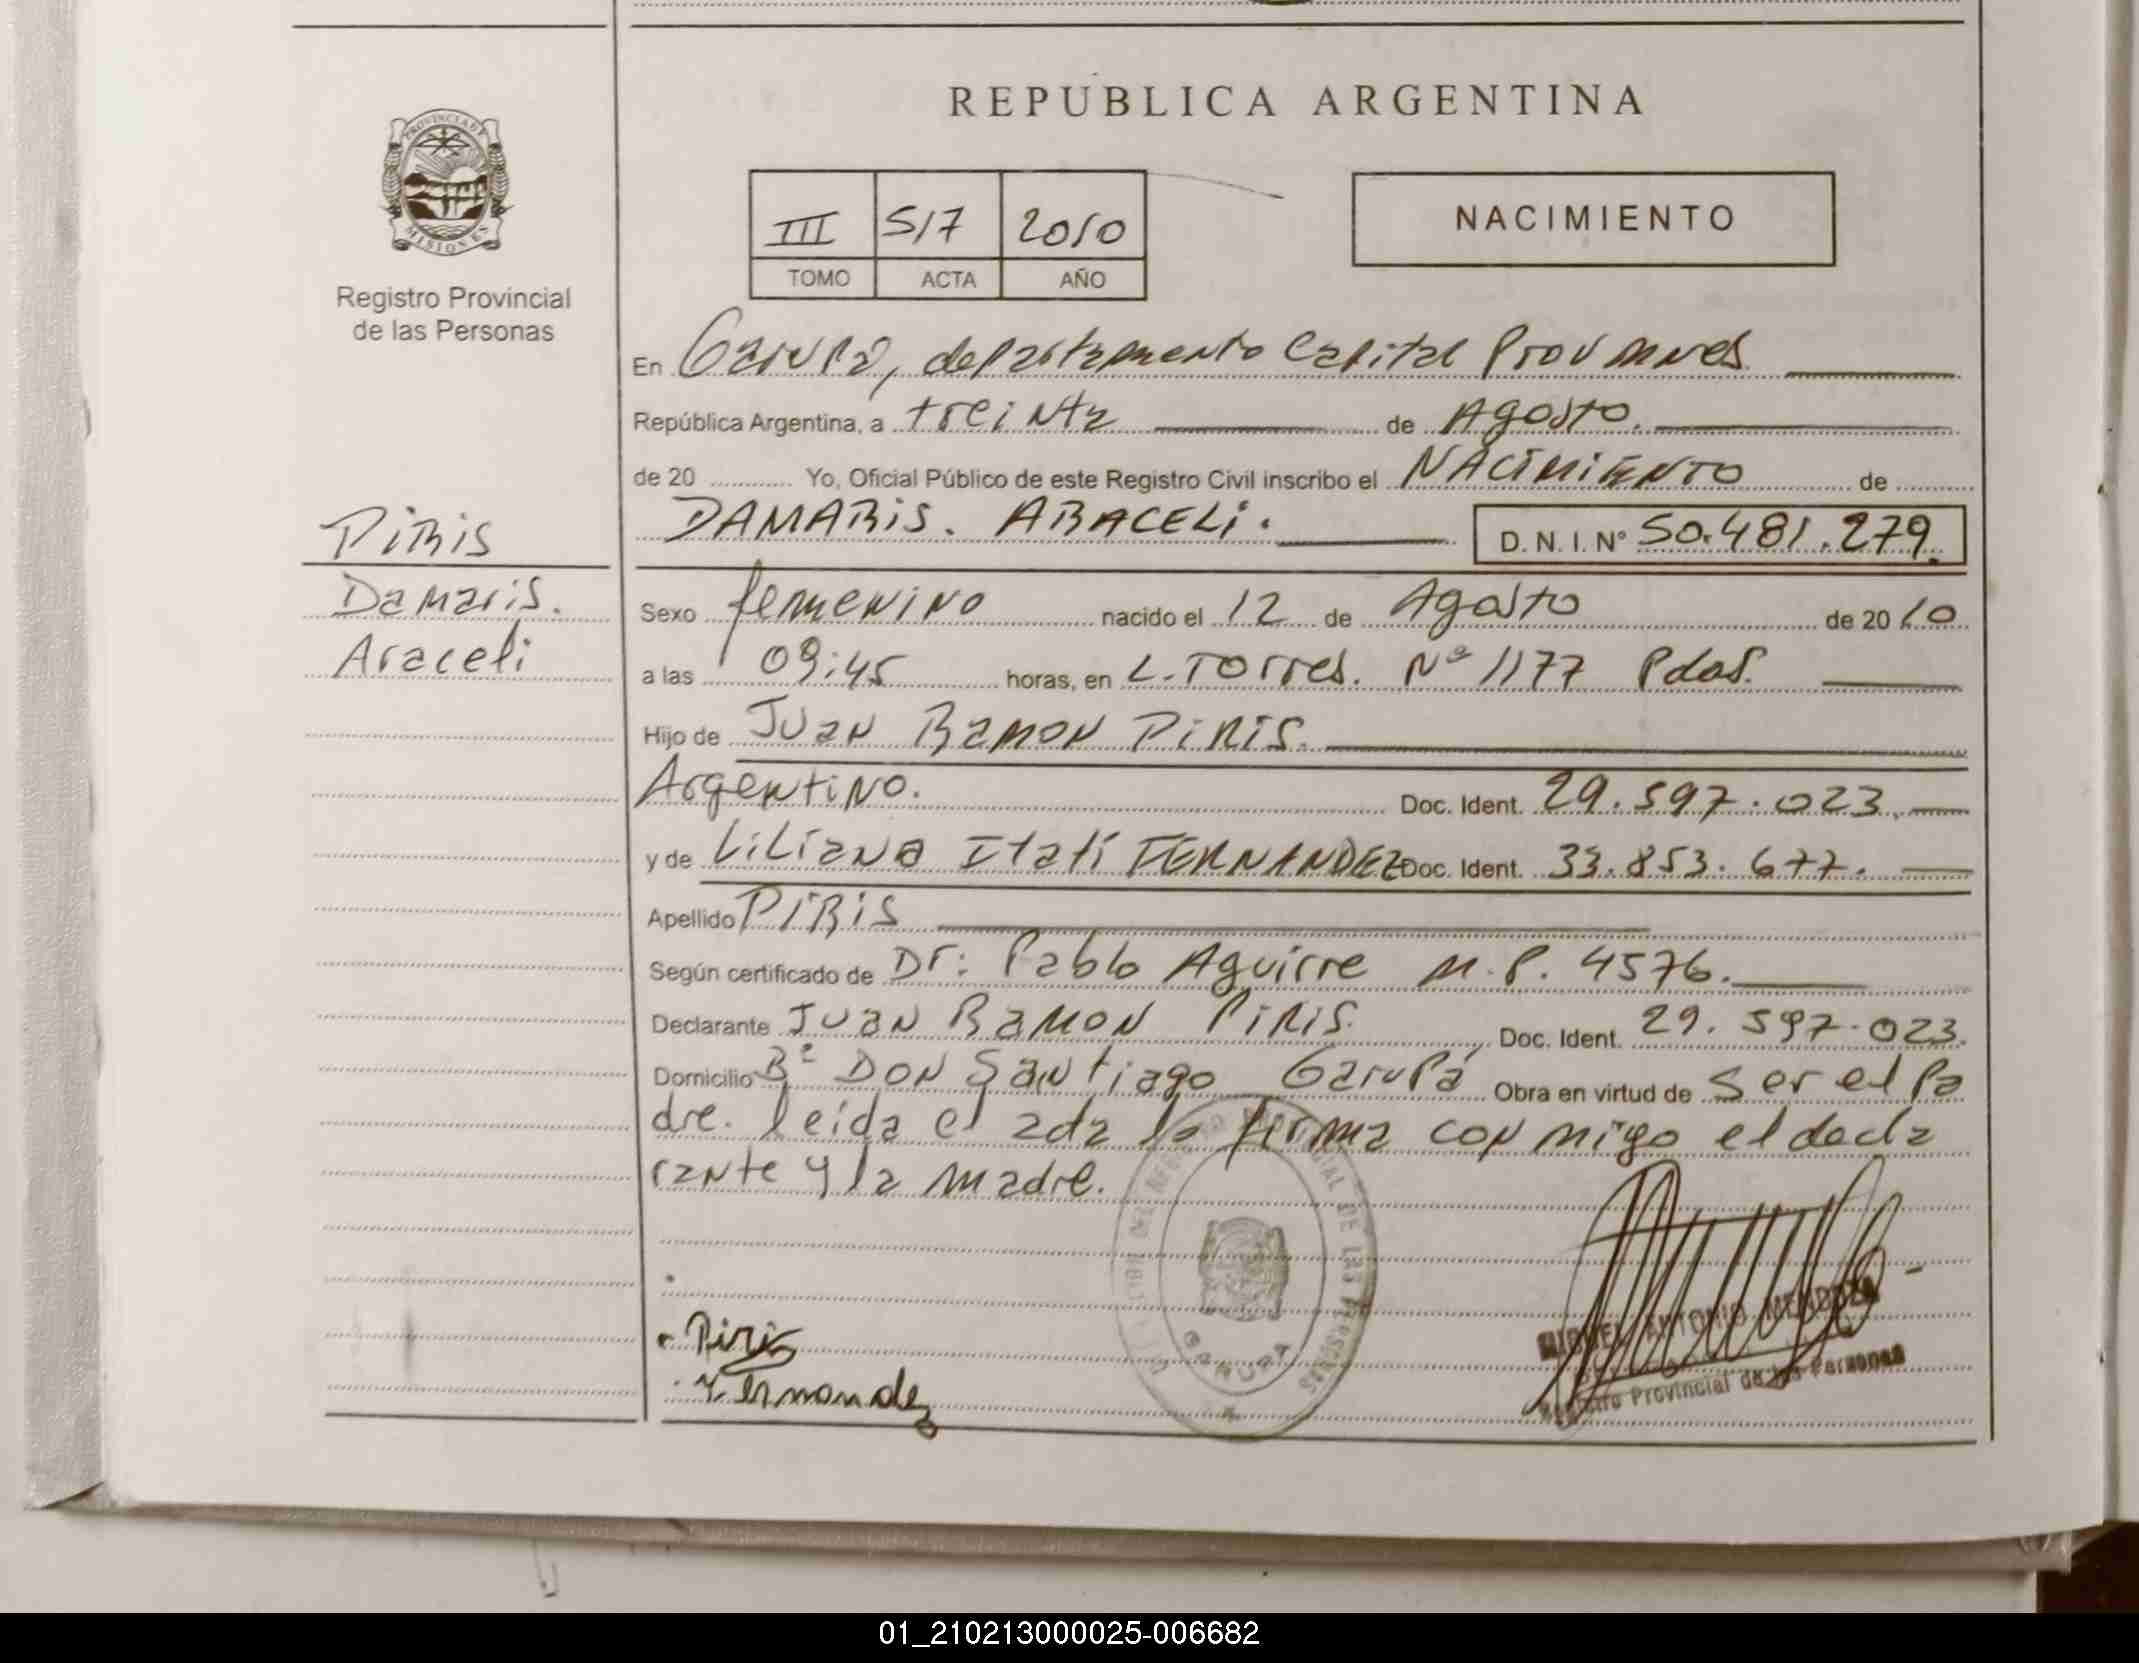 REPUBLICA ARGENTINA
PROVINCIA DE
MISIONES
Registro Provincial
de las Personas
III 517 2010
TOMO ACTA AÑO
NACIMIENTO
En Garupá, departamento Capital Prov Mnes
República Argentina, a treinta de Agosto.
de 20 ............ Yo, Oficial Público de este Registro Civil inscribo el NACIMIENTO de
DAMARIS. ARACELI. D. N. I. N° 50.481.279.
PIRIS
Damaris.
Araceli
Sexo femenino nacido el 12 de Agosto de 2010
a las 09:45 horas, en L. Torres. Nº 1177 Pdas.
Hijo de Juan Ramon PIRIS.
Argentino. Doc. Ident. 29.597.023.
y de Liliana Itatí FERNANDEZ Doc. Ident. 33.853.677.
Apellido PIRIS
Según certificado de Dr: Pablo Aguirre M.P. 4576.
Declarante Juan Ramon PIRIS. Doc. Ident. 29.597.023.
Domicilio Bº Don Santiago Garupá Obra en virtud de ser el Pa
dre. leida el acta la firma con migo el decla
rante y la madre.
DE LAS PERSONAS
GARUPA
Piris
Fernandez
MIGUEL ANTONIO MENDOZA
Registro Provincial de las Personas
01_210213000025-006682